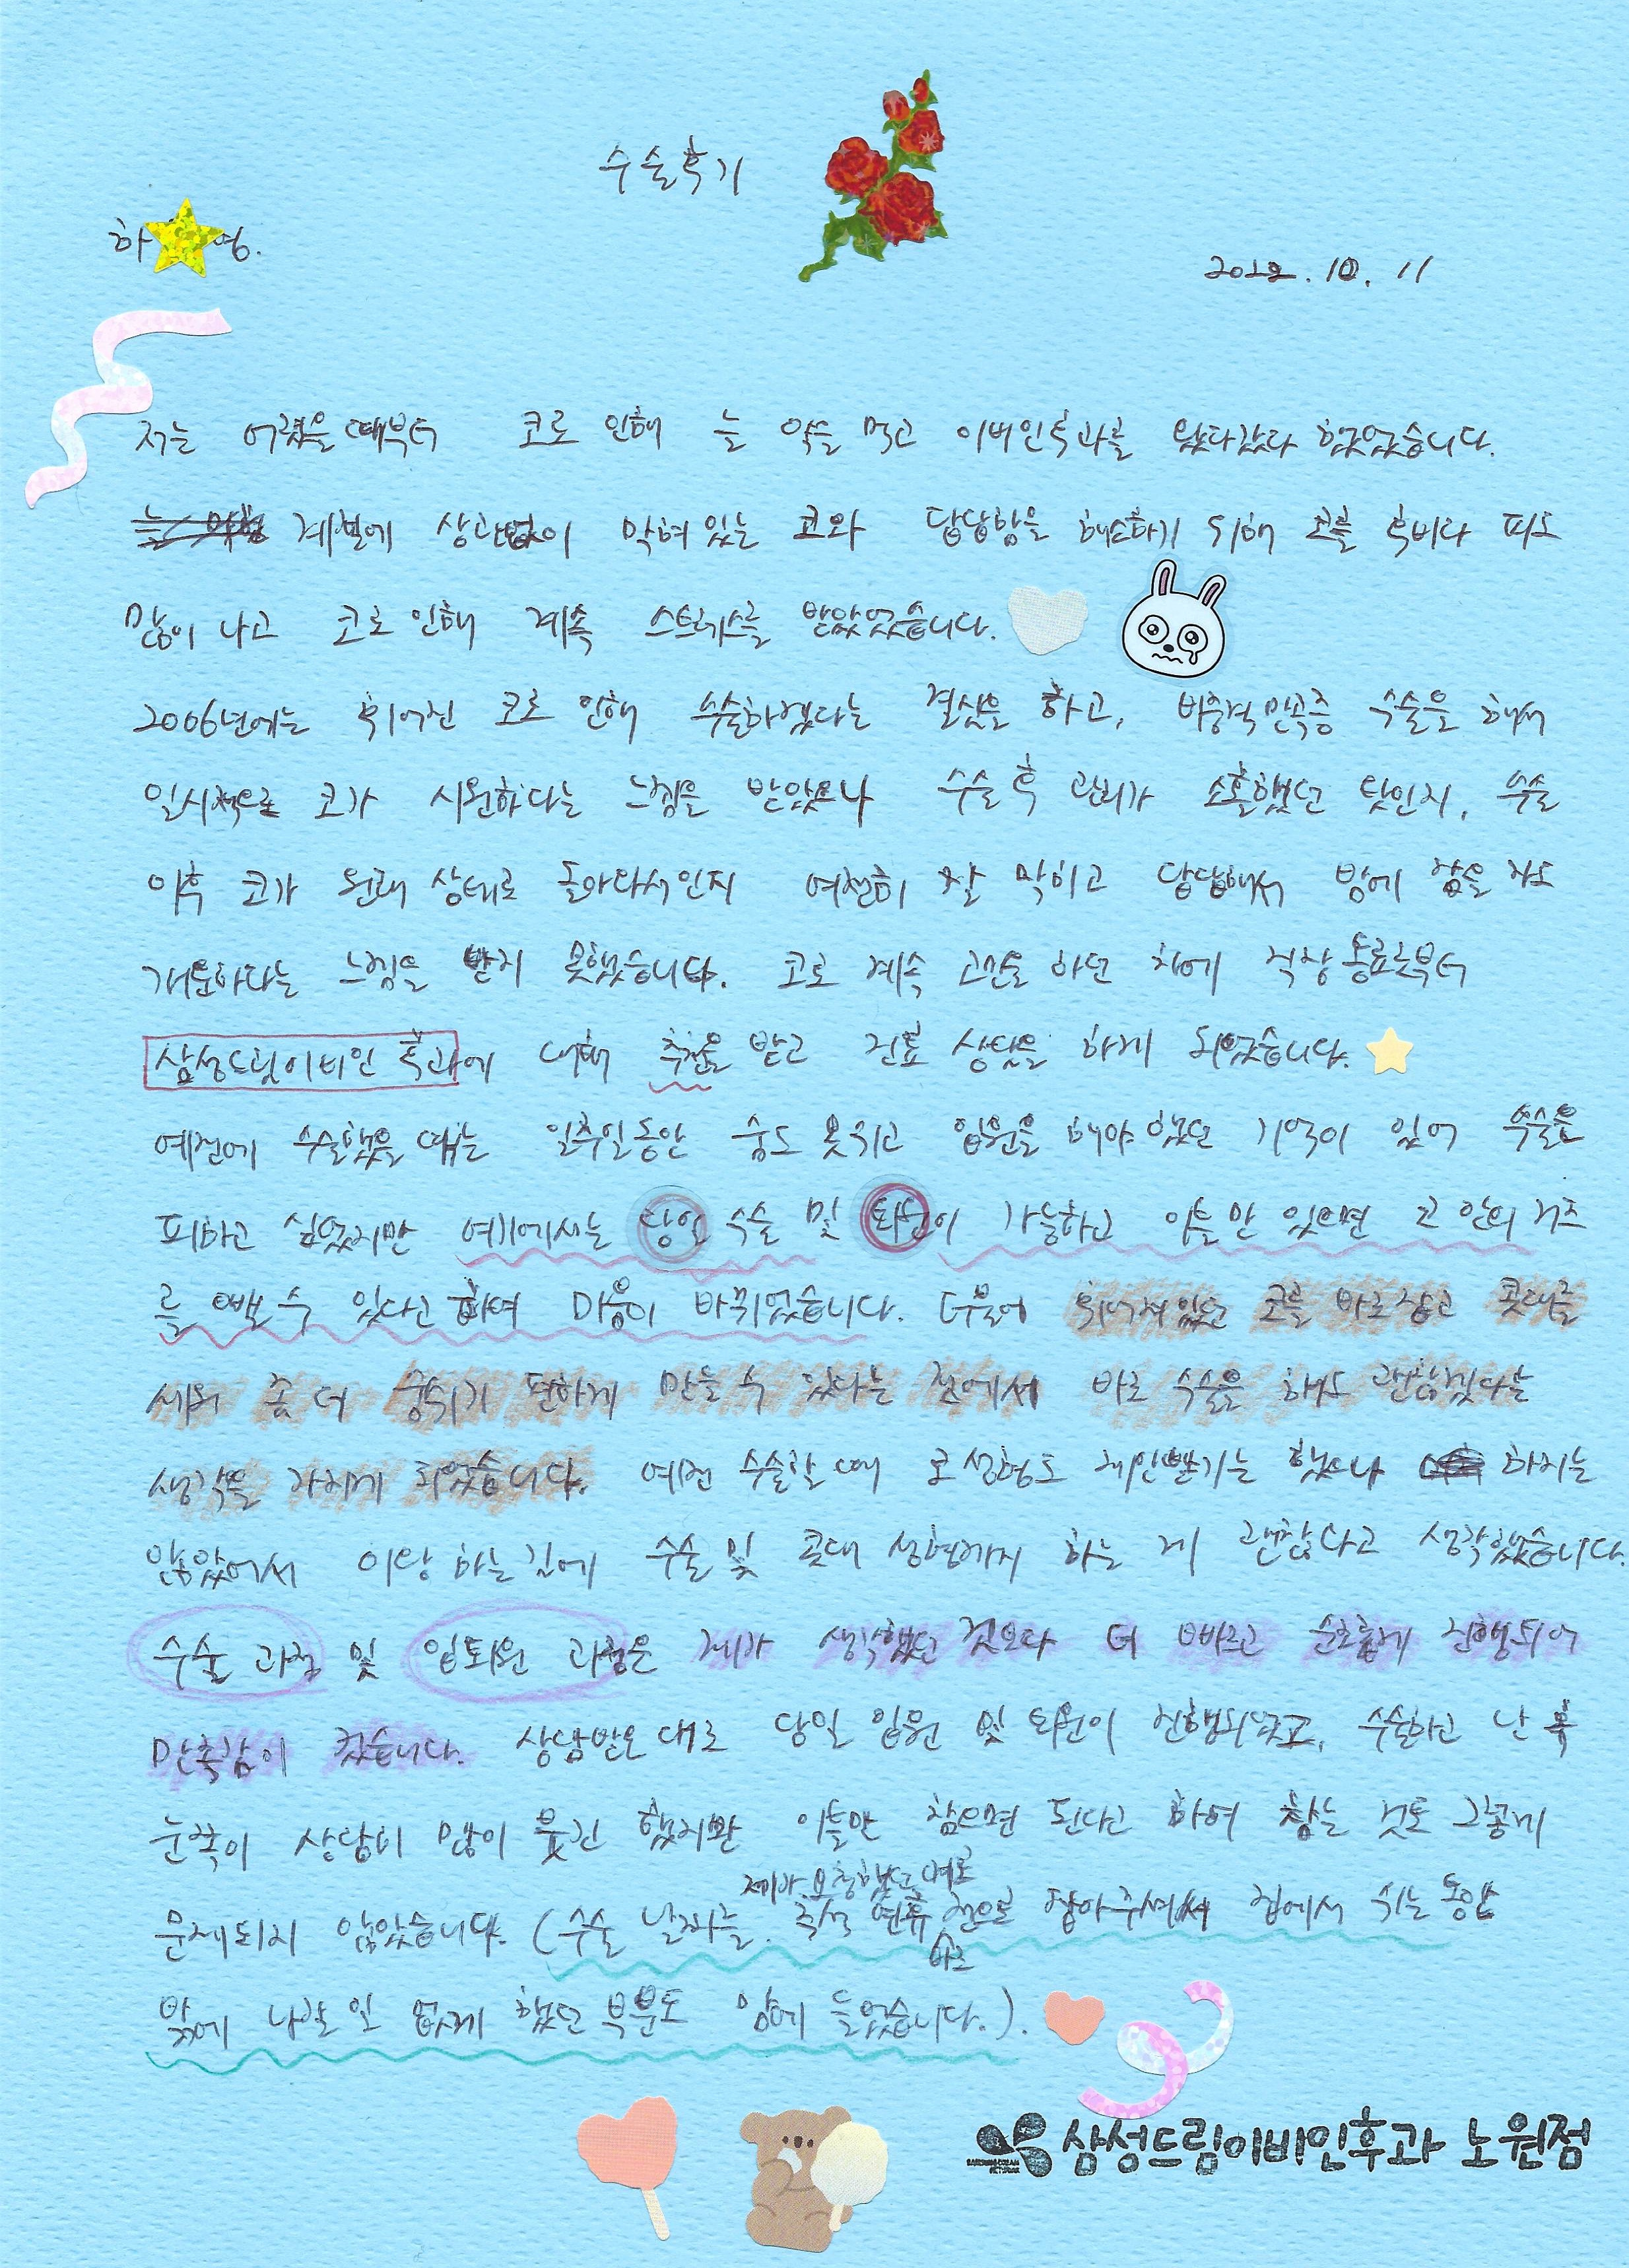 수술후기
하 영.
2022.10.11
저는 어렸을때부터 코로 인해 늘 약을 먹고 이비인후과를 왔다갔다 했었습니다.
계절에 상관없이 막혀있는 코와 답답함을 해소하기 위해 코를 후비다 피도
많이 나고 코로 인해 계속 스트레스를 받았었습니다.
2006년에는 휘어진 코로 인해 수술하겠다는 결심을 하고, 비중격만곡증 수술을 해서
일시적으로 코가 시원하다는 느낌을 받았으나 수술 후 관리가 소홀했던 탓인지, 수술
이후 코가 원래 상태로 돌아다서인지 여전히 잘 막히고 답답해서 밤에 잠을 자도
개운하다는 느낌을 받지 못했습니다. 코로 계속 고민을 하던 차에 직장동료로부터
삼성드림이비인후과에 대해 추천을 받고 진료 상담을 하게 되었습니다.
예전에 수술했을 때는 일주일동안 숨도 못쉬고 입원을 해야 했던 기억이 있어 수술을
피하고 싶었지만 여기에서는 당일 수술 및 퇴원이 가능하고 이틀만 있으면 코 안의 거즈
를 뺄 수 있다고 하여 마음이 바뀌었습니다. 더불어 휘어져있던 코를 바로잡고 콧대를
세워 좀 더 숨쉬기 편하게 만들 수 있다는 점에서 바로 수술을 해도 괜찮겠다는
생각을 가지게 되었습니다. 예전 수술할 때 코 성형도 제안받기는 했으나 하지는
않았어서 이왕 하는 김에 수술 및 콧대 성형까지 하는 게 괜찮다고 생각했습니다.
수술 과정 및 입퇴원 과정은 제가 생각했던 것보다 더 빠르고 순조롭게 진행되어
만족감이 컸습니다. 상담받은 대로 당일 입원 및 퇴원이 진행되었고, 수술하고 난 후
눈쪽이 상당히 많이 붓긴 했지만 이틀만 참으면 된다고 하여 참는 것도 그렇게
제가 요청했던 대로
문제되지 않았습니다. (수술 날짜를 즉석 연휴 전으로 잡아주셔서 집에서 쉬는 동안
바로
밖에 나갈 일 없게 했던 부분도 맘에 들었습니다.).
삼성드림이비인후과 노원점